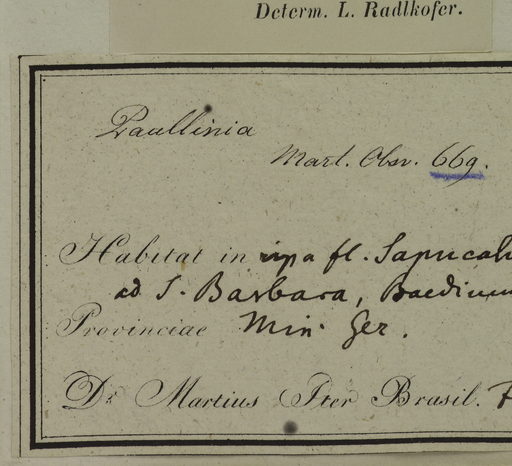 Determ. L. Radlkofer.
Paullinia
Mart. Obsr. 669.
Habitat in ripa fl. Sapucah
ad S. Barbara,
Provinciae Min. Ger.
Dr. Martius Iter Brasil.